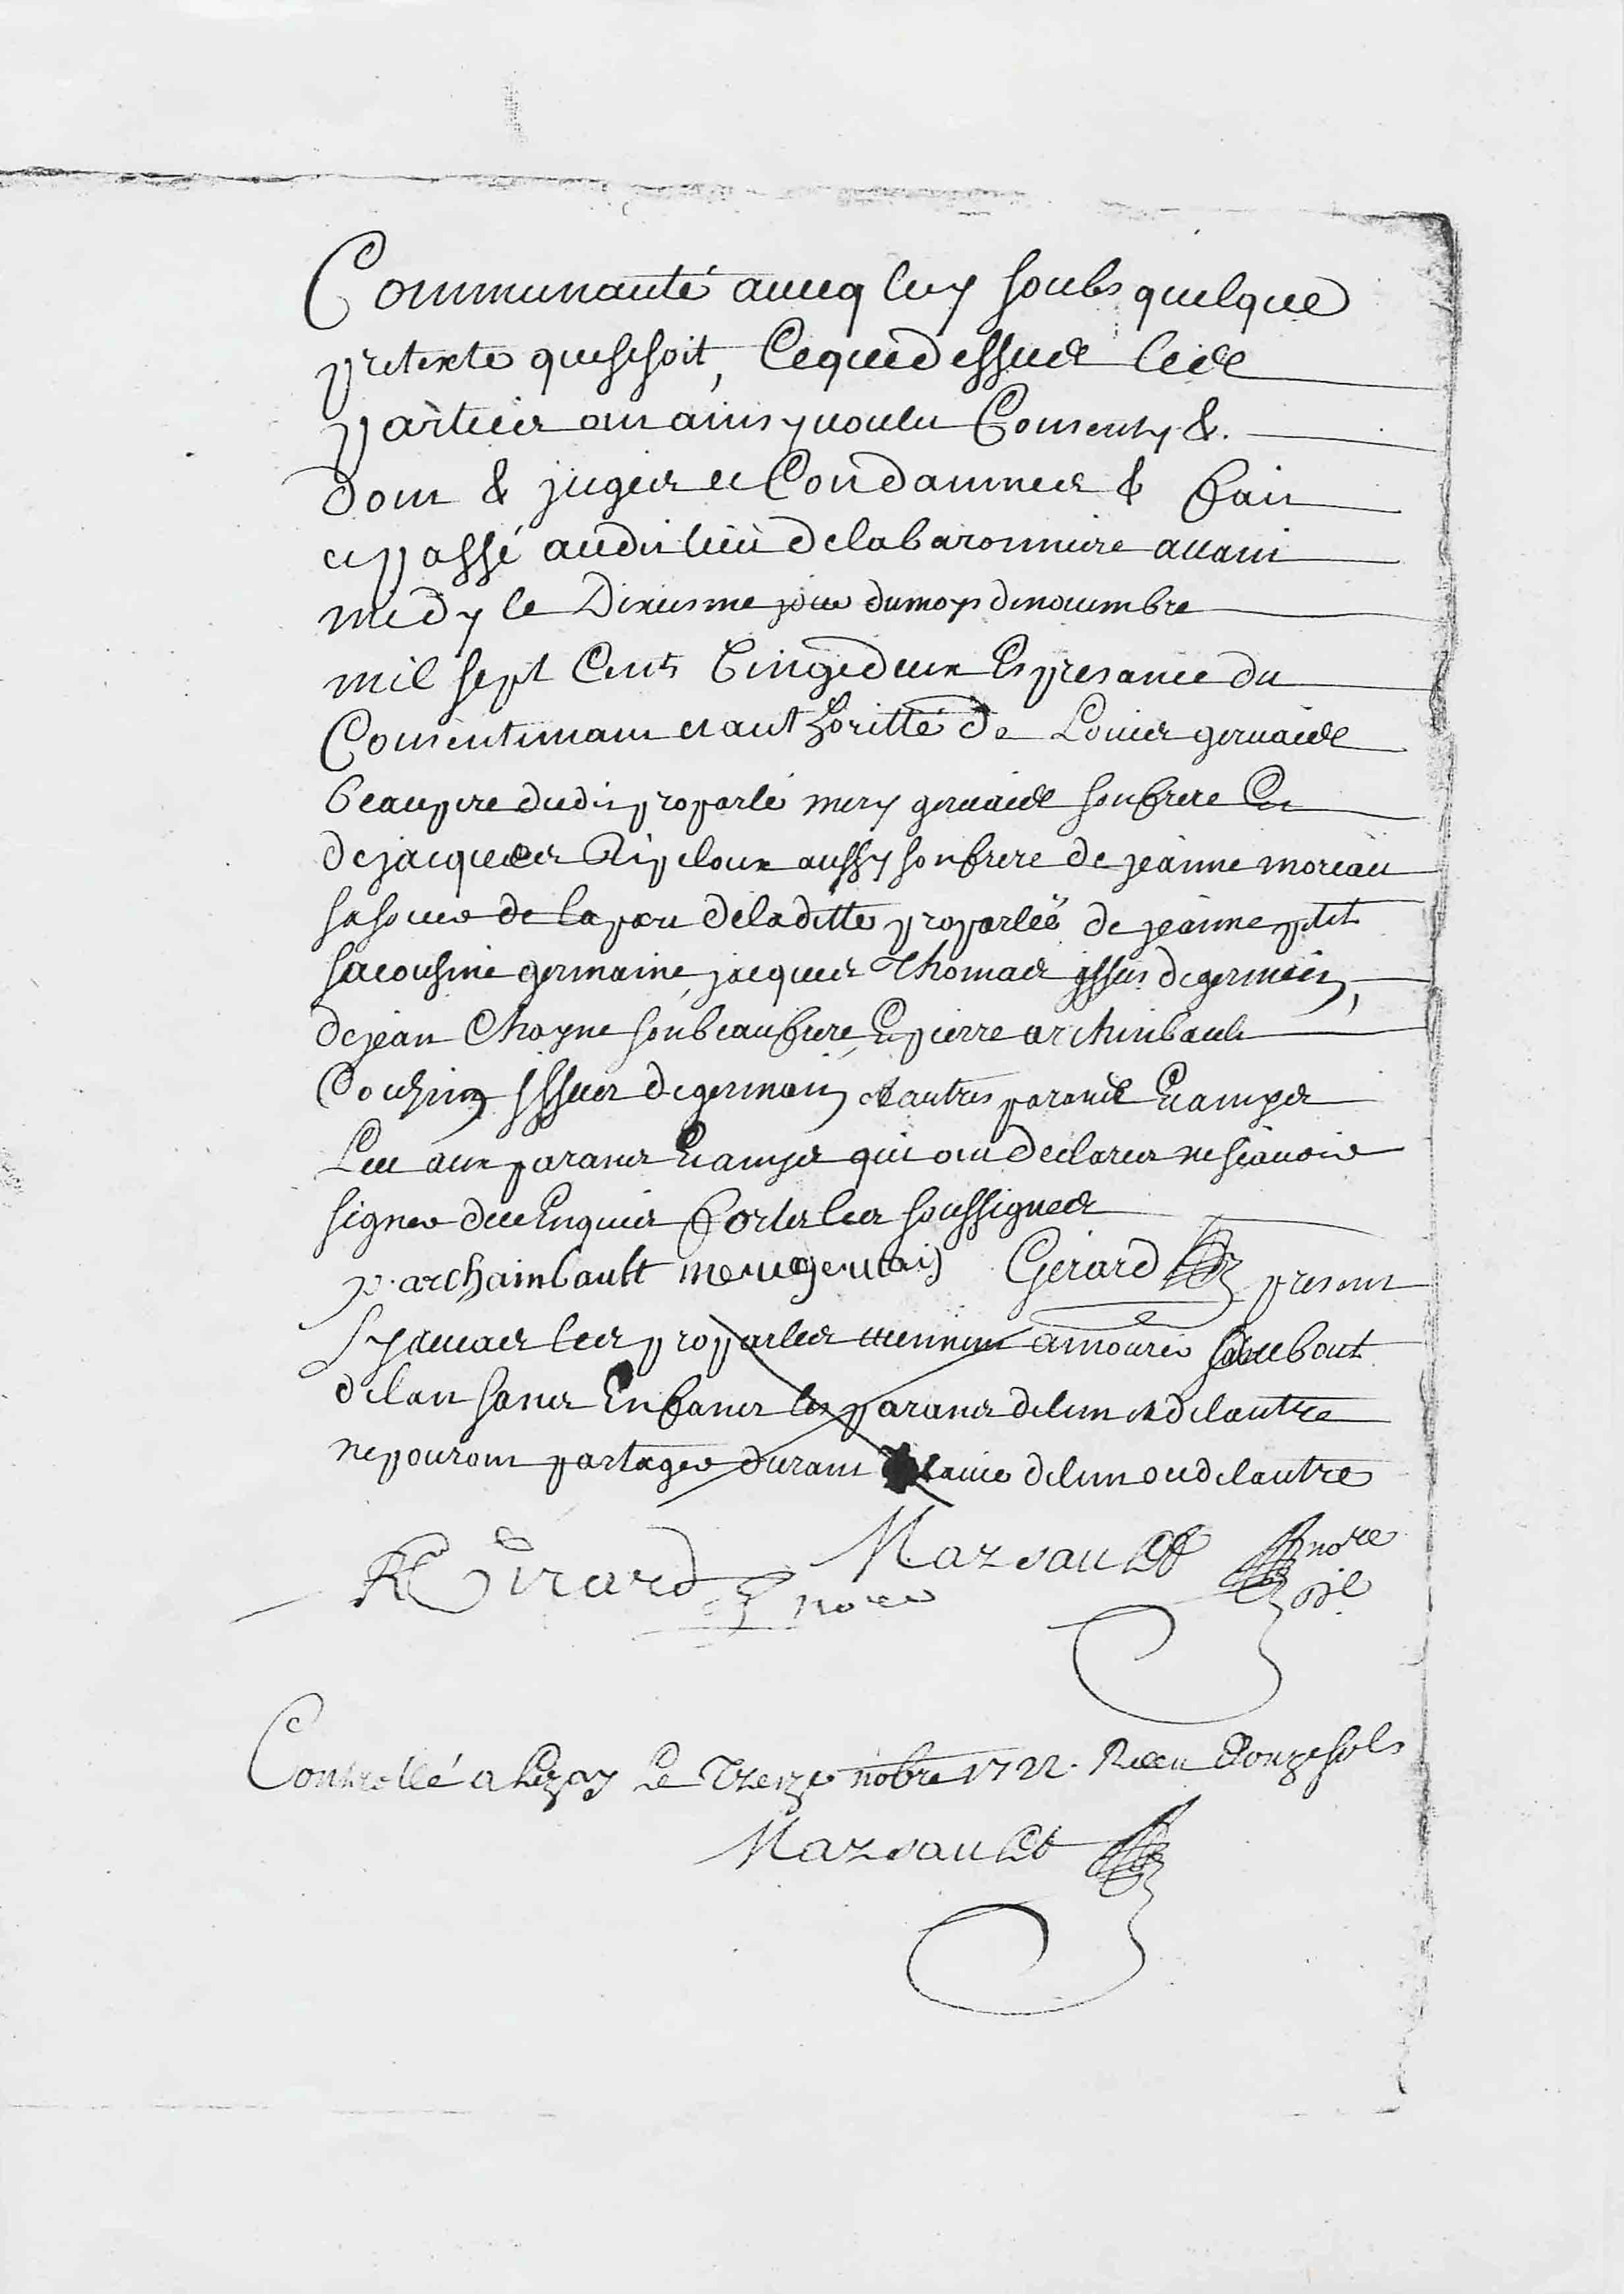 Communauté avecq luy soubs quelque
pretexte que se soit, Ce que dessus les
parties ont ainsy voulu Consenty &.
dont & jugés et Condamnés & fait
et passé audit lieu de la baronniere avant
midy le Dixiesme jour du moys de novembre
mil sept Cents Vingt deux En presance du
Consentimant et authoritté de Louis gervais
beaupere dudit proparlé mery gervais son frere Et
de jacques Ripeloux aussy son frere de jeanne moreau
sa soeur de la part de laditte proparléé de jeanne petit
sa cousine germaine, jacques Thomas issus de germain,
de jean Choyne son beaufrere, Et pierre archinbault
Cousin Issus de germain et autres parans Et amys
Leu aux parans Et amys qui ont declarés ne scavoir
signer de ce Enquis fors les soussignés
p. archainbault mery gervais Gerard present
sy devant les proparlés viennent a mourir au bout
de lan sans Enfans les parans de lun et de lautre
ne pouront partager durant la vie de lun ou de lautre
R Girard nore
Marsault nore
Controllé a Lezay Le Treize nobre 1722. Receu Douze sols
Marsault